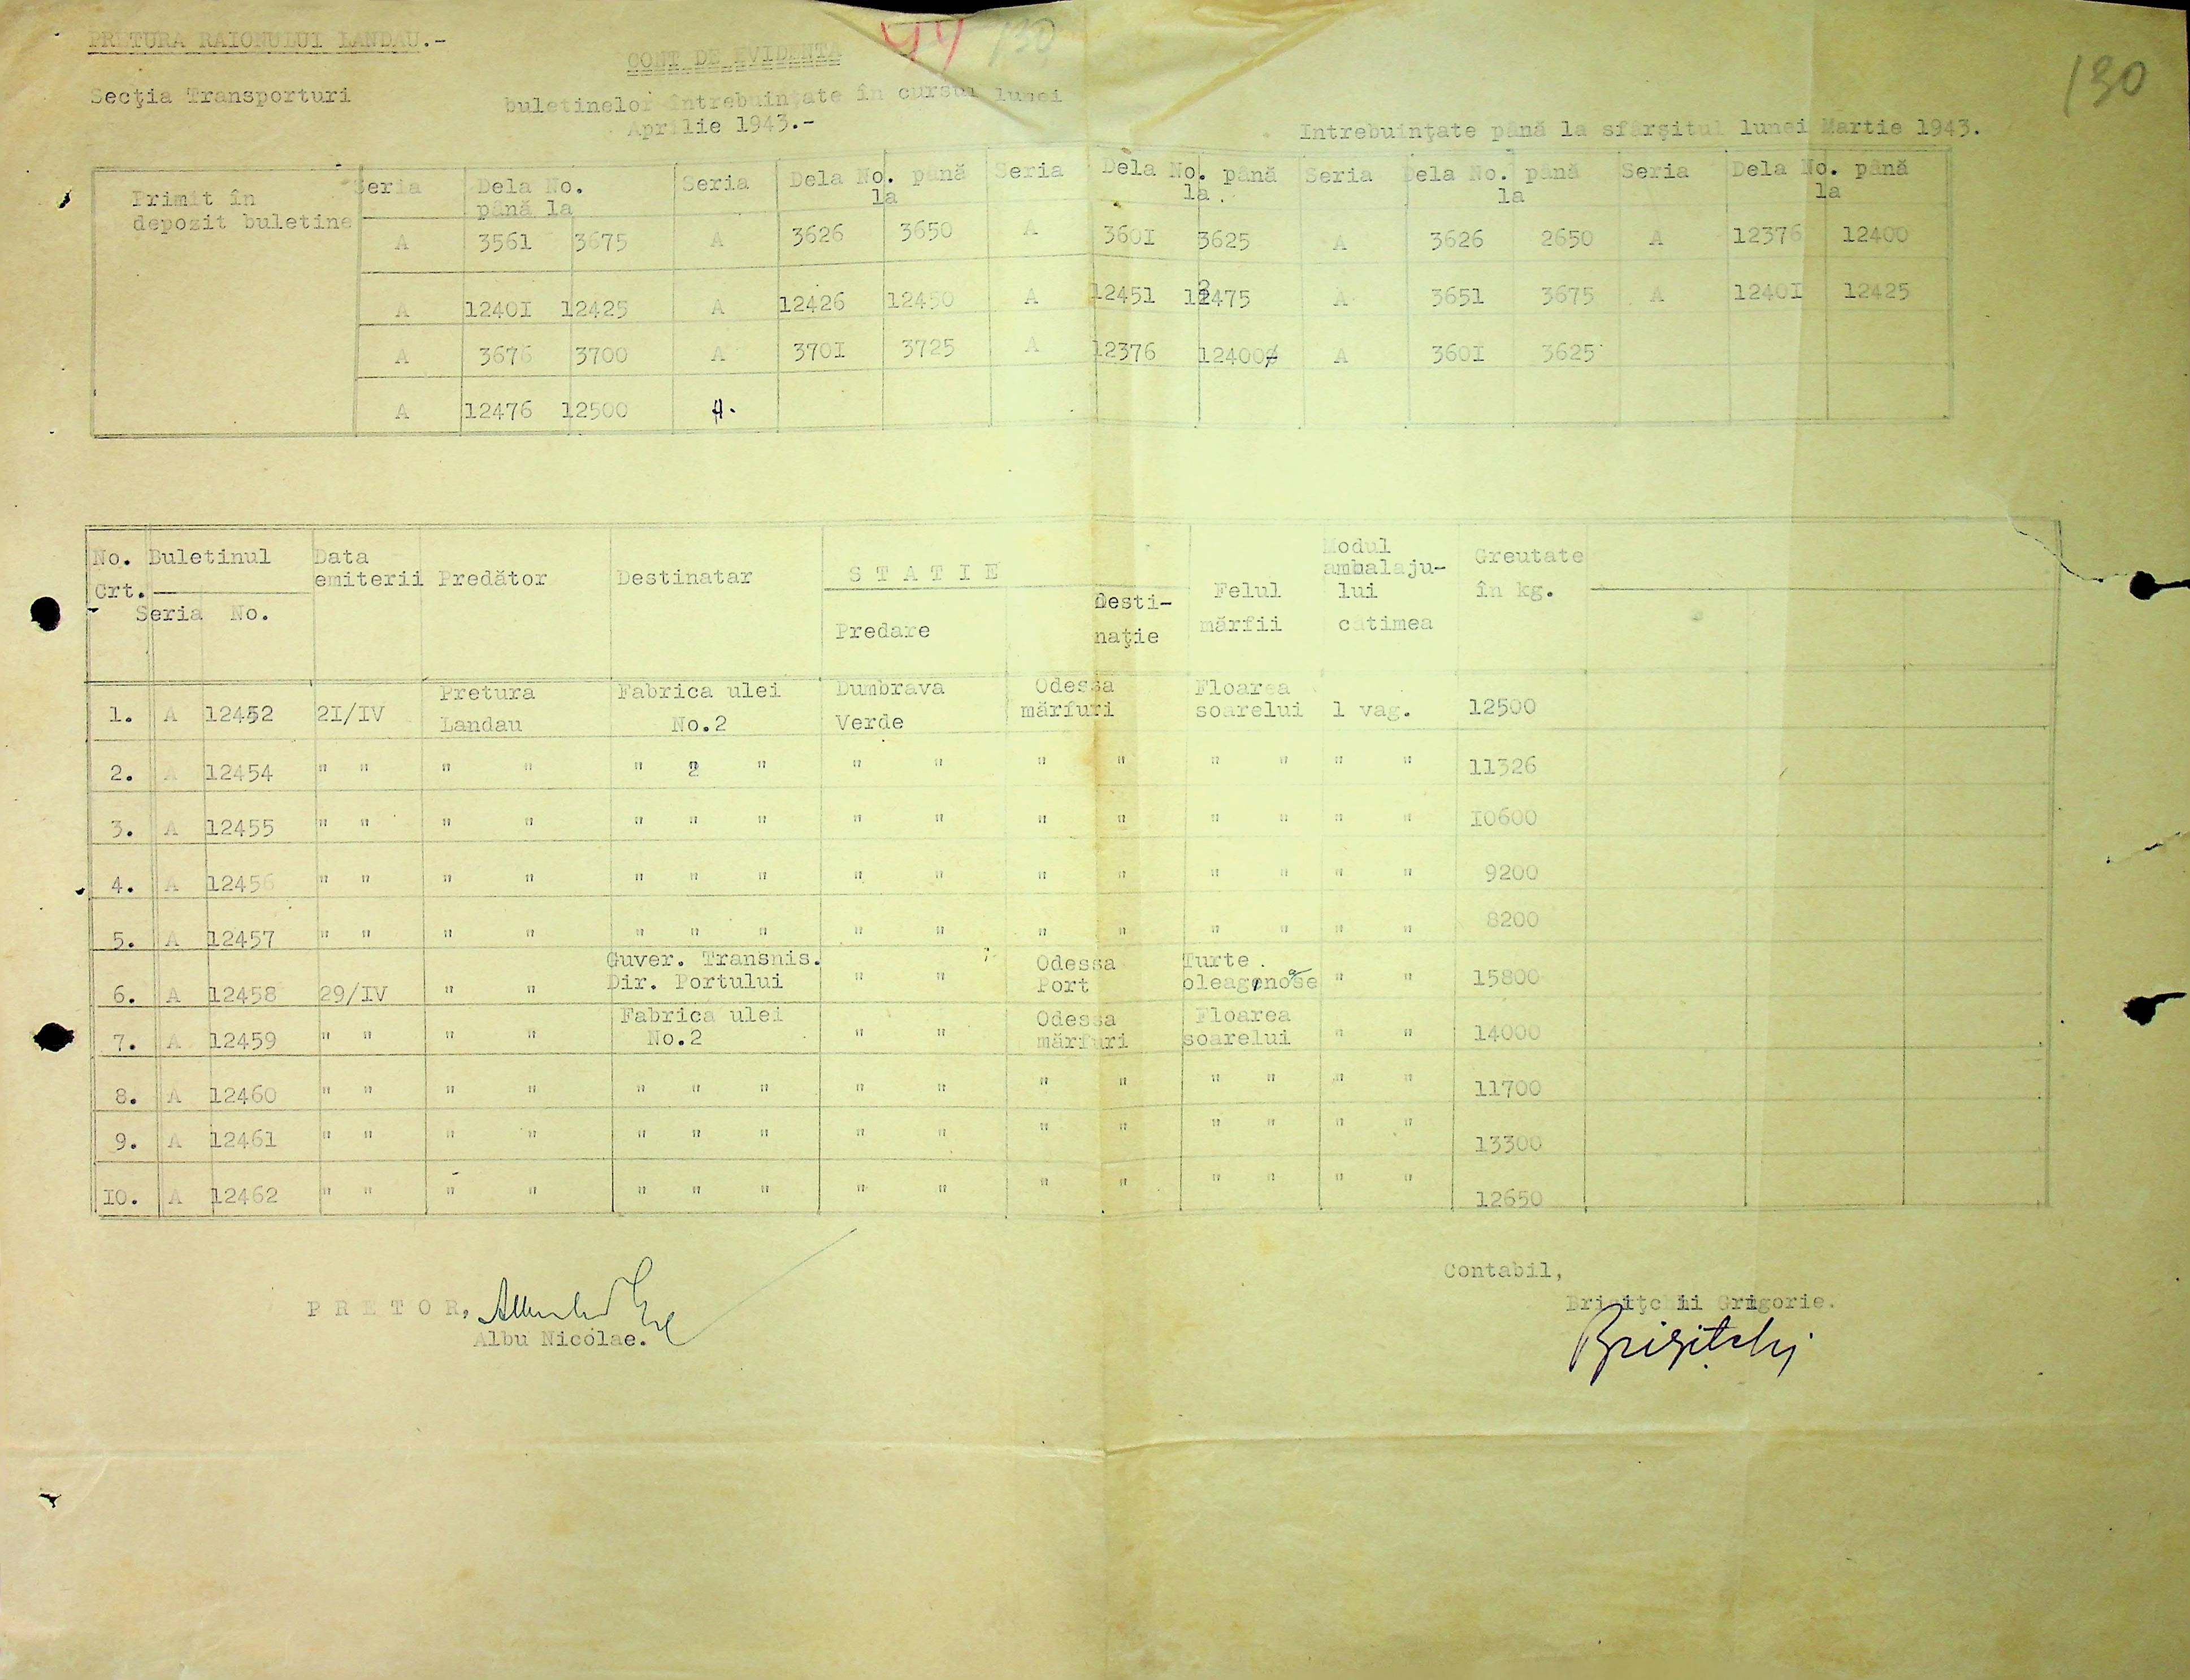 PRETURA RAIONULUI LANDAU.-
130
130
CONT DE EVIDENTA
Secţia Transporturi
buletinelor întrebuinţate în cursul lunei
Aprilie 1943.-
Intrebuinţate până la sfârşitul lunei Martie 1943.
Primit în depozit buletine
Seria Dela No. până la Seria Dela No. până la Seria Dela No. până la Seria Dela No. până la Seria Dela No. până la
A 3561 3675 A 3626 3650 A 360I 3625 A 3626 2650 A 12376 12400
A 1240I 12425 A 12426 12450 A 12451 12475 A 3651 3675 A 1240I 12425
A 3676 3700 A 370I 3725 A 12376 12400 A 360I 3625
A 12476 12500 A.
No. Crt. Buletinul Seria No. Data emiterii Predător Destinatar S T A T I E Predare Desti-naţie Felul mărfii Modul ambalaju-lui câtimea Greutate în kg.
1. A 12452 2I/IV Pretura Landau Fabrica ulei No.2 Dumbrava Verde Odessa mărfuri Floarea soarelui 1 vag. 12500
2. A 12454 " " " " " 2 " " " " " " " " " 11326
3. A 12455 " " " " " " " " " " " " " " " I0600
4. A 12456 " " " " " " " " " " " " " " " 9200
5. A 12457 " " " " " " " " " " " " " " " 8200
6. A 12458 29/IV " " Guver. Transnis. Dir. Portului " " Odessa Port Turte oleagenoase " " 15800
7. A 12459 " " " " Fabrica ulei No.2 " " Odessa mărfuri Floarea soarelui " " 14000
8. A 12460 " " " " " " " " " " " " " " " 11700
9. A 12461 " " " " " " " " " " " " " " " 13300
I0. A 12462 " " " " " " " " " " " " " " " 12650
P R E T O R,
Albu Nicolae.
Contabil,
Briziţchii Grigorie.
Brizitchi